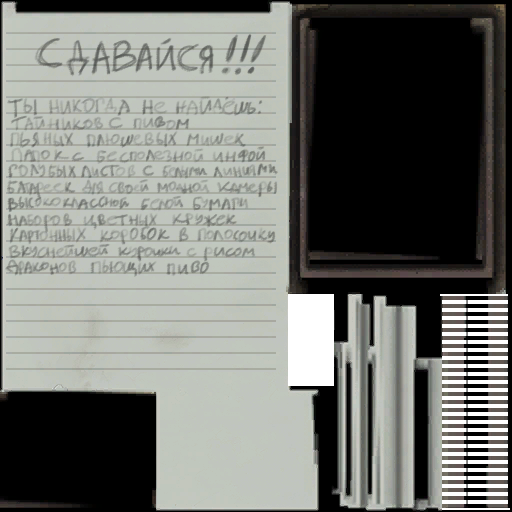 СДАВАЙСЯ!!!
ТЫ НИКОГДА НЕ НАЙДЁШЬ:
ТАЙНИКОВ С ПИВОМ
ПЬЯНЫХ ПЛЮШЕВЫХ МИШЕК
ПАПОК С БЕСПОЛЕЗНОЙ ИНФОЙ
ГОЛУБЫХ ЛИСТОВ С БЕЛЫМИ ЛИНИЯМИ
БАТАРЕЕК ДЛЯ СВОЕЙ МОДНОЙ КАМЕРЫ
ВЫСОКОКЛАССНОЙ БЕЛОЙ БУМАГИ
НАБОРОВ ЦВЕТНЫХ КРУЖЕК
КАРТОННЫХ КОРОБОК В ПОЛОСОЧКУ
ВКУСНЕЙШЕЙ КУРОЧКИ С РИСОМ
ДРАКОНОВ ПЬЮЩИХ ПИВО